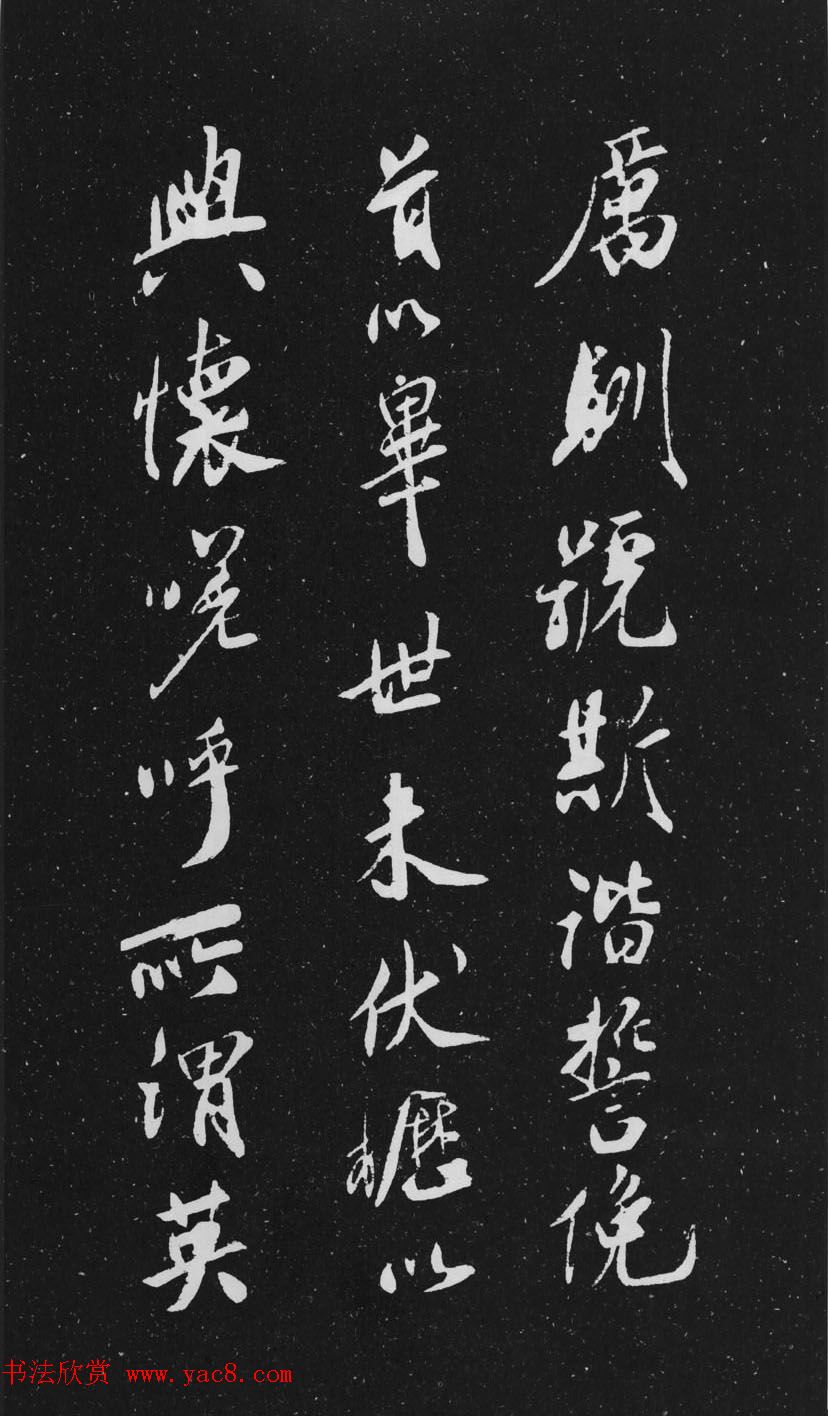 厲馴號斯谐誓俛
首以畢世未伏櫪以
興懷嗟呼所謂英
书法欣赏 www.yac8.com